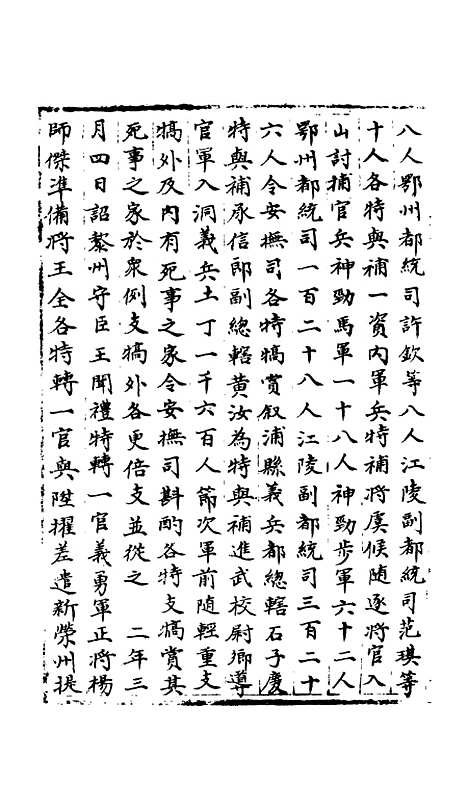 八人鄂州都統司許欽等八人江陵副都統司范琪等
十人各特與補一資內軍兵特補將虞候隨逐將官入
山討捕官兵神勁馬軍一十八人神勁步軍六十二人
鄂州都統司一百二十八人江陵副都統司三百二十
六人令安撫司各特犒賞叙浦縣義兵都總轄石子慶
特與補承信郎副總轄黄汝為特與補進武校尉鄉導
官軍入洞義兵土丁一千六百人節次軍前隨輕重支
犒外及內有死事之家令安撫司斟酌各特支犒賞其
死事之家於衆例支犒外各更倍支並從之　二年三
月四日詔黎州守臣王聞禮特轉一官義勇軍正將楊
師傑凖備將王全各特轉一官與陞擢差遣新榮州提